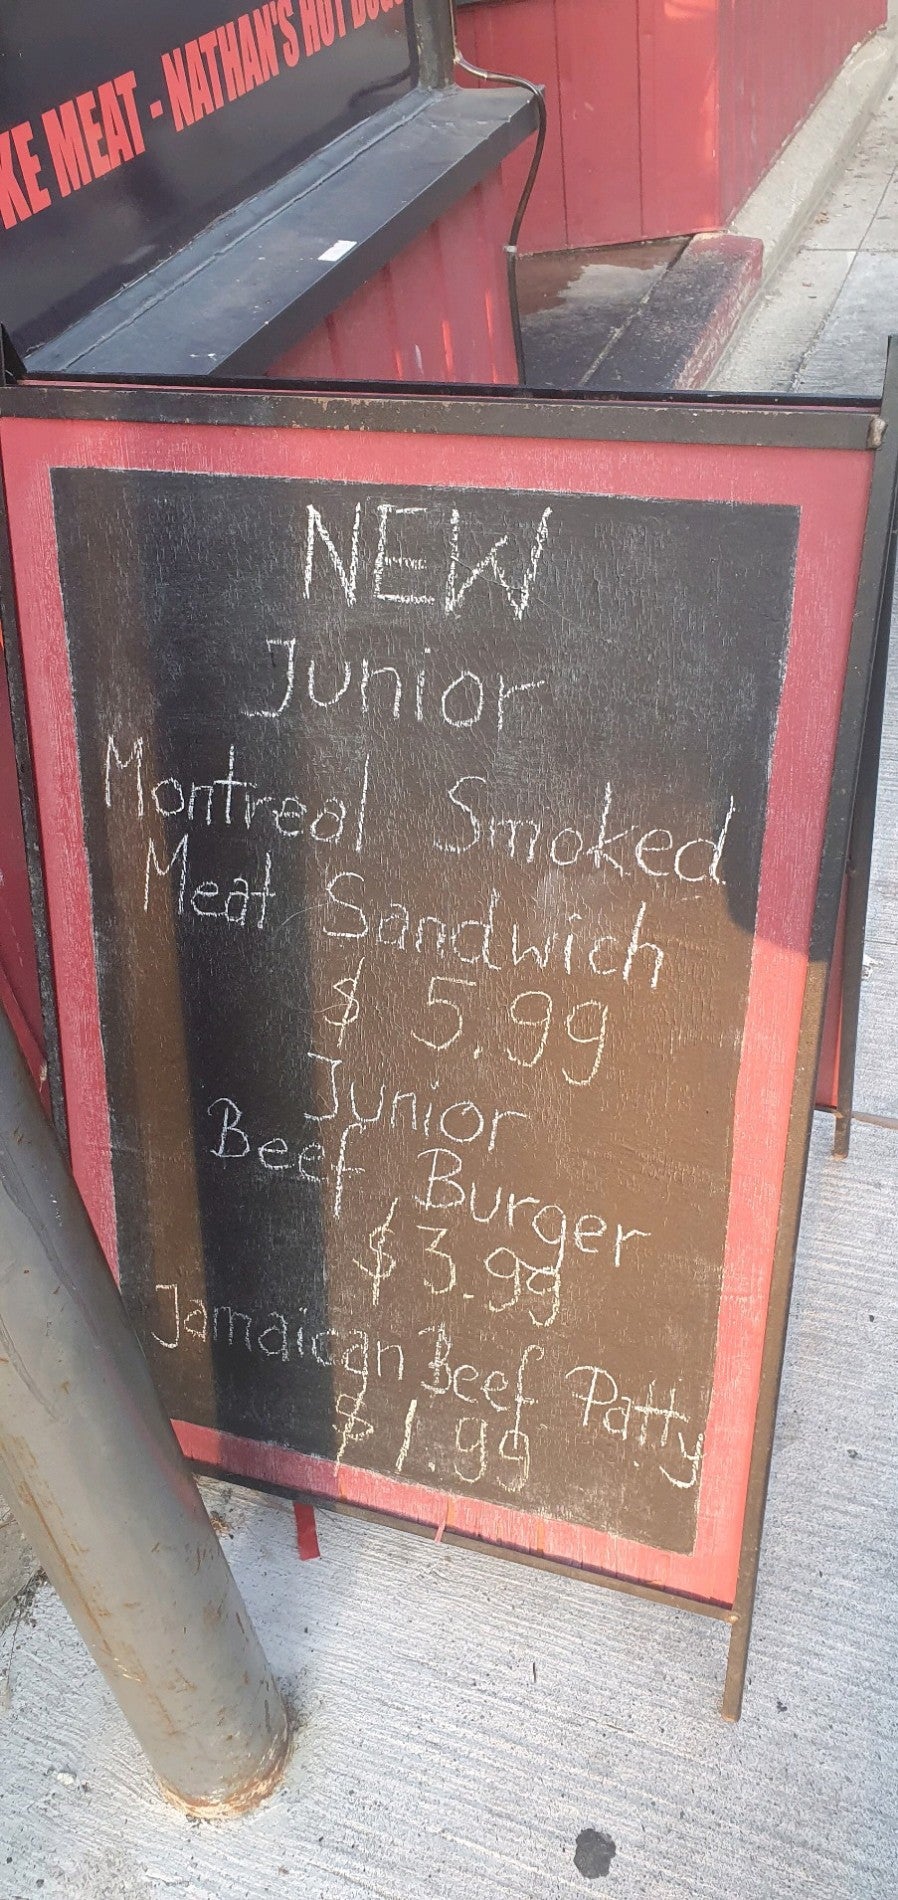 KE MEAT - NATHAN'S HOT DOGS
NEW
Junior
Montreal Smoked
Meat Sandwich
$ 5.99
Junior
Beef Burger
$ 3.99
Jamaican Beef Patty
$ 1.99